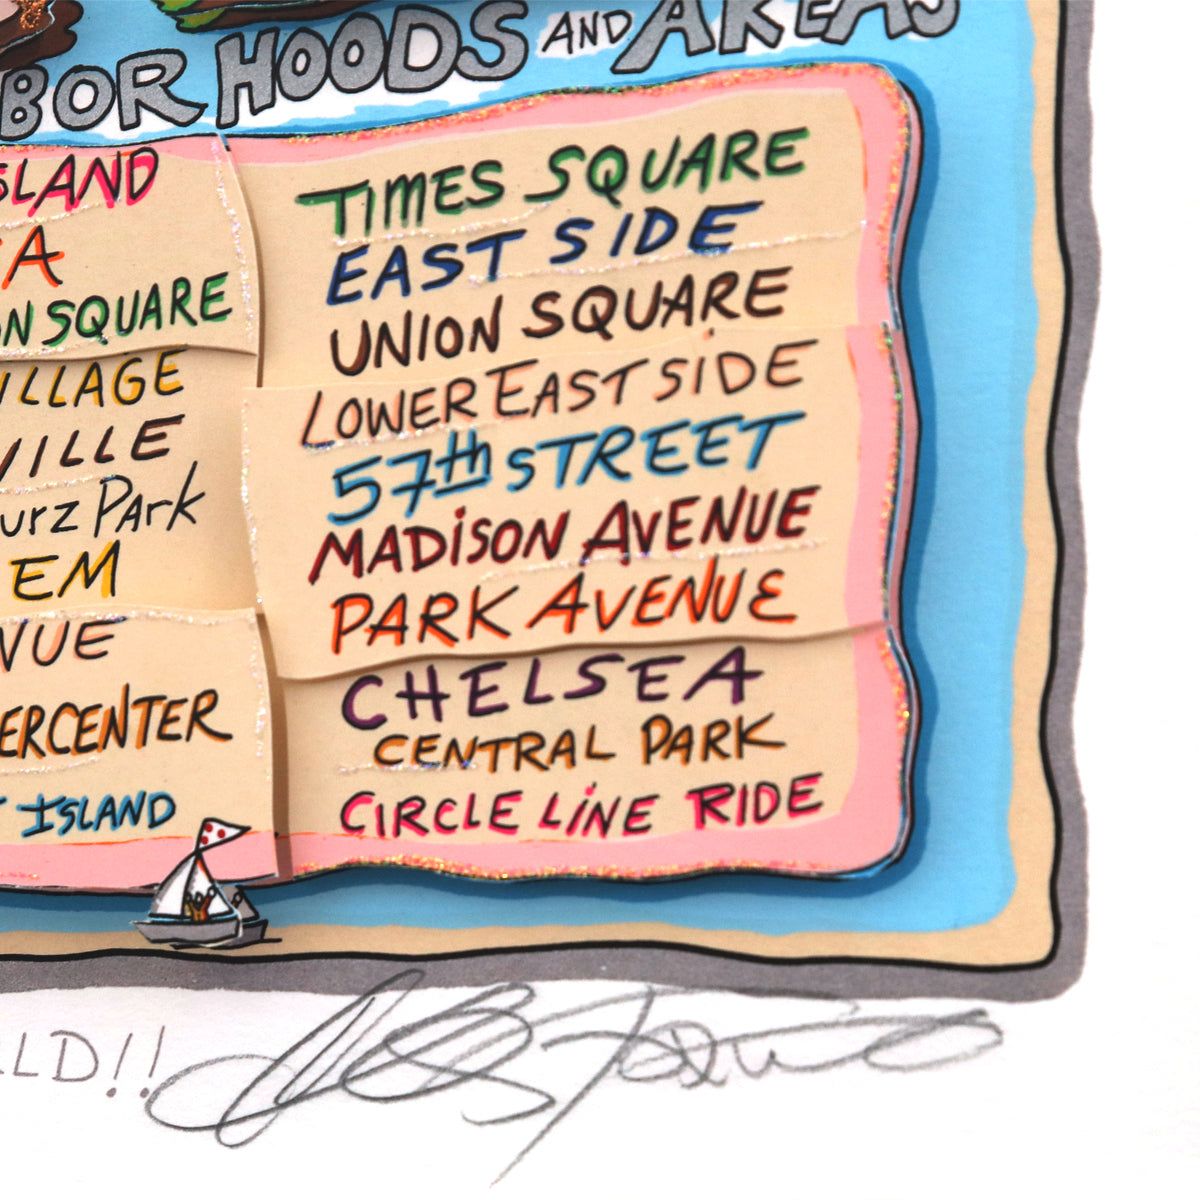 BORHOODS AND AREAS
SLAND
A
ON SQUARE
ILLAGE
VILLE
URZ PARK
EM
VUE
ERCENTER
ISLAND
TIMES SQUARE
EAST SIDE
UNION SQUARE
LOWER EAST SIDE
57th STREET
MADISON AVENUE
PARK AVENUE
CHELSEA
CENTRAL PARK
CIRCLE LINE RIDE
LD!!